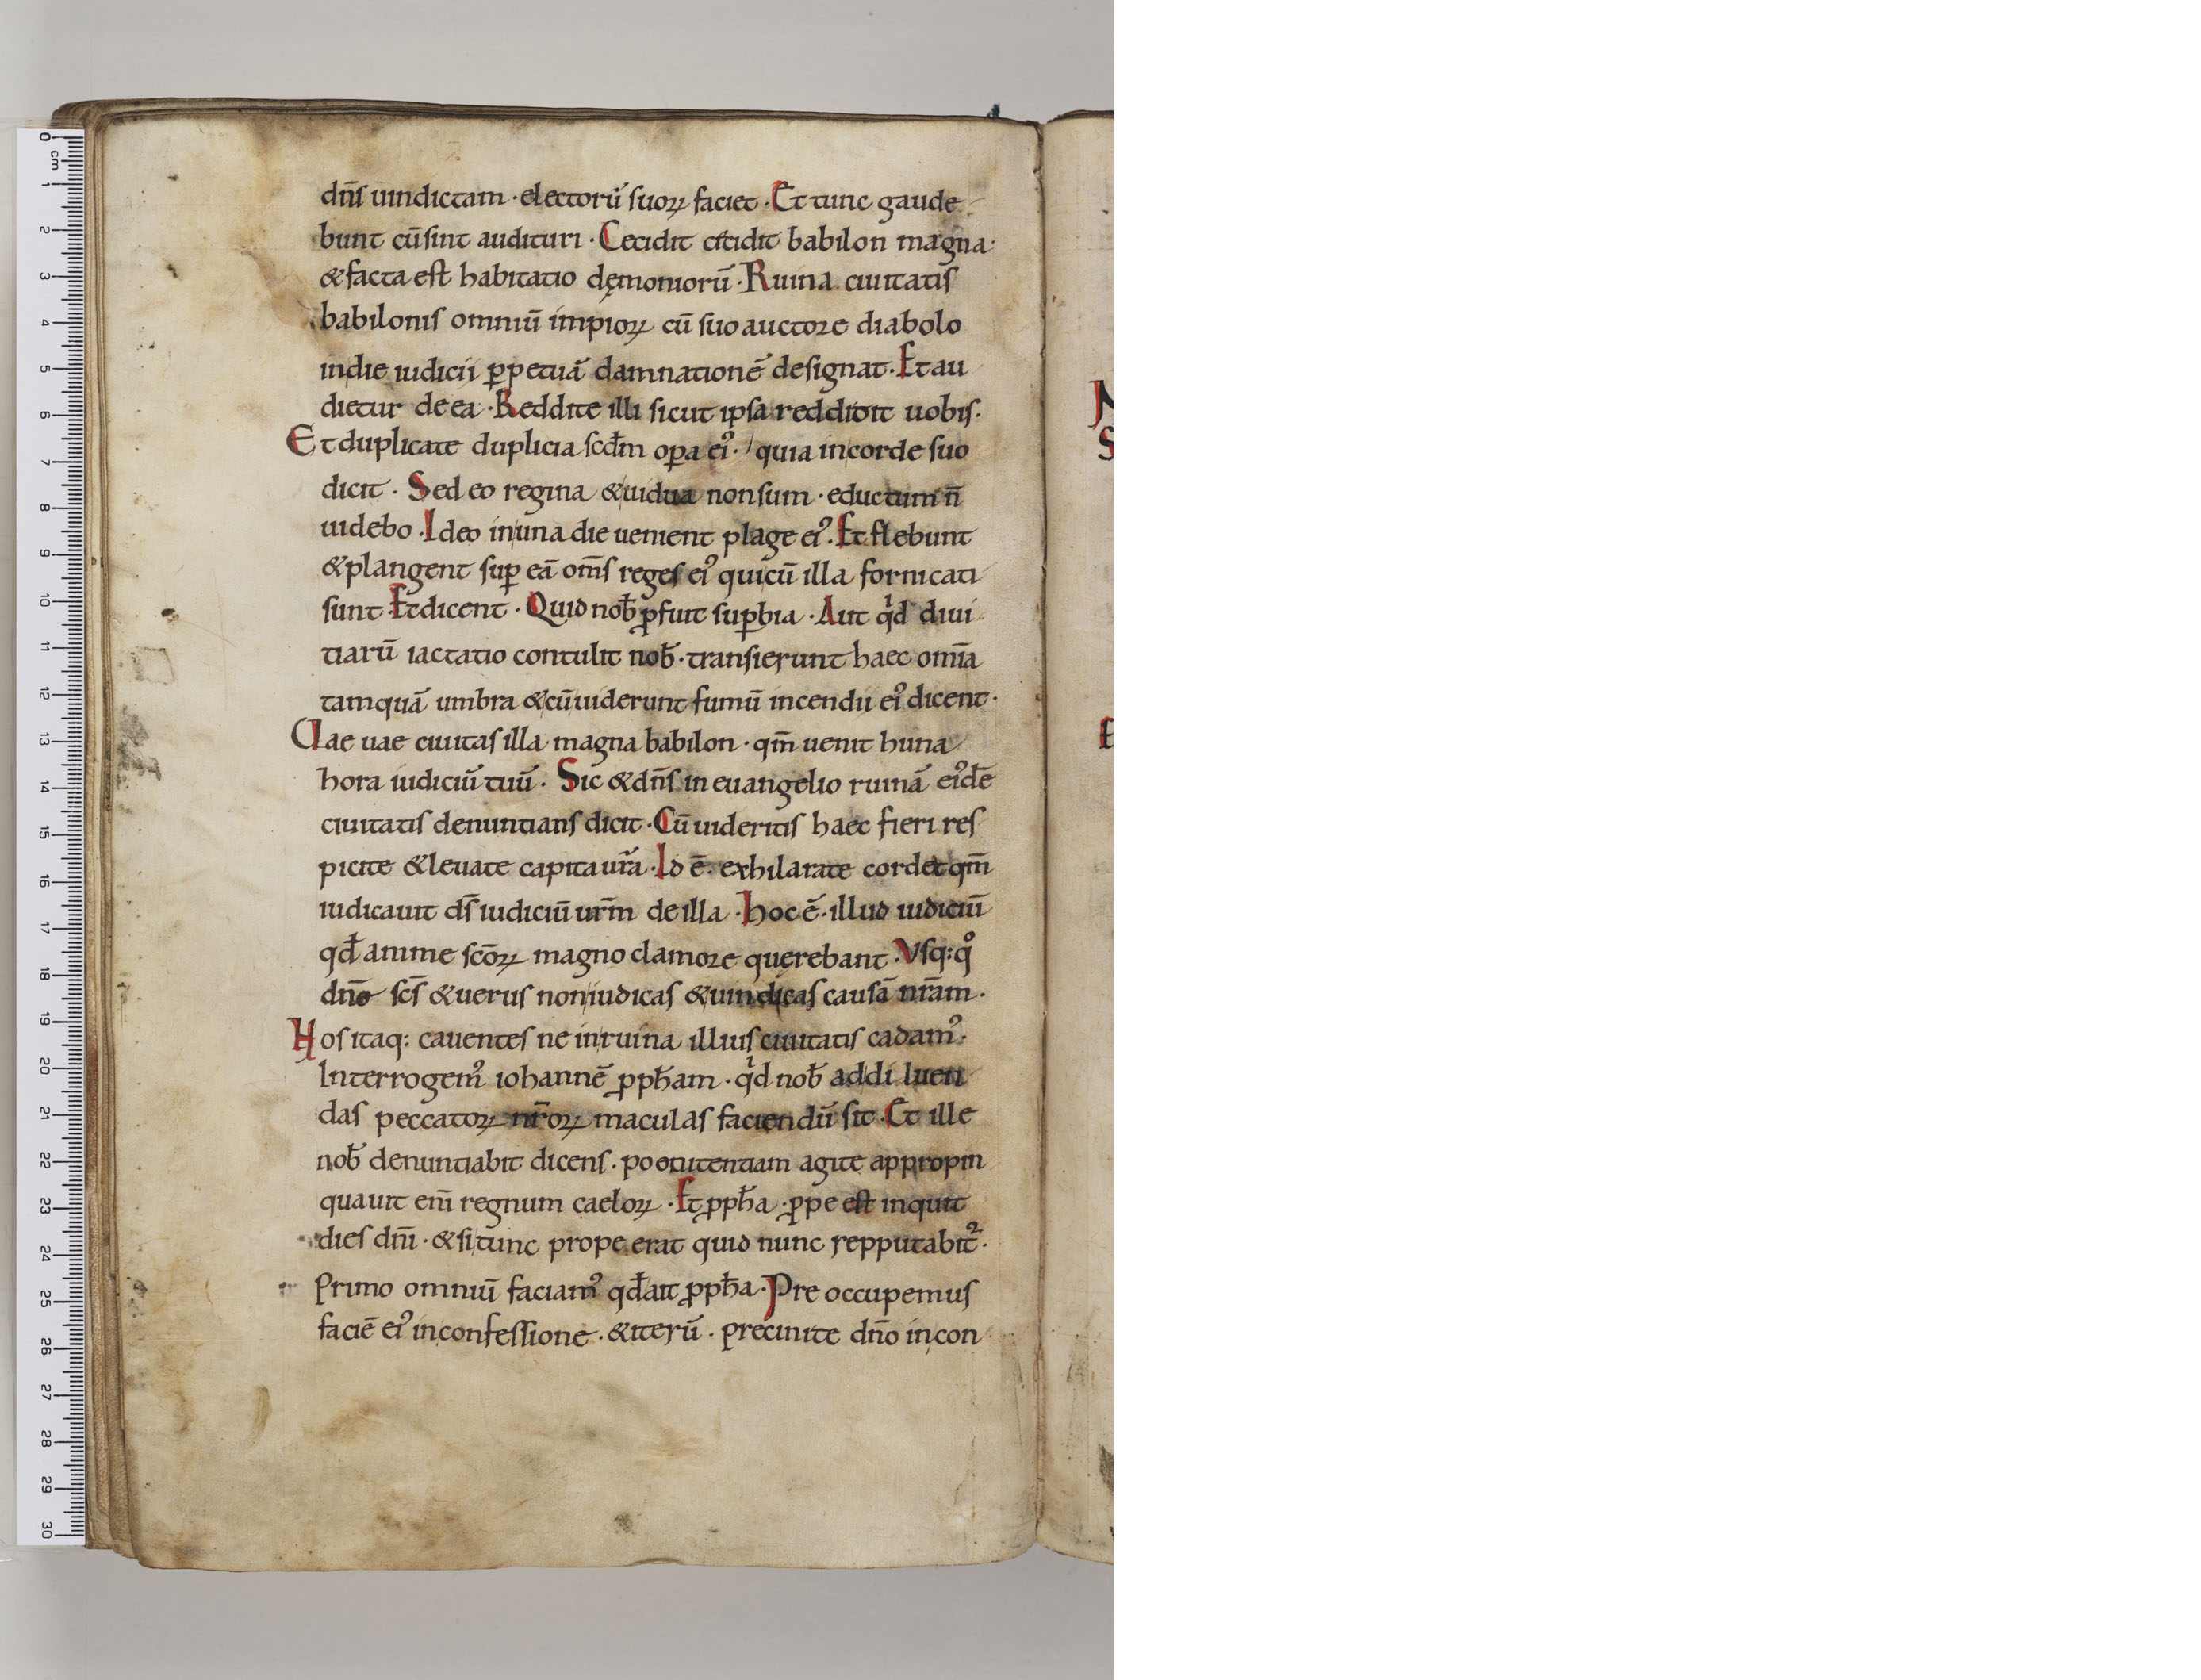 dn̄s uindictam · electorū suoꝝ faciet · Et tunc gaude
bunt cū sint audituri · Cecidit cecidit babilon magna ·
& facta est habitatio dęmoniorū · Ruina ciuitatis
babilonis omniū impioꝝ cū suo auctore diabolo
indie iudicii ꝑpetuā damnationē designat · Et au
dietur de ea · Reddite illi sicut ipsa reddidit uobis ·
Et duplicate duplicia scđm oꝑa eiꝰ · quia incorde suo
dicit · Sedeo regina & uidua non sum · & luctum n̄
uidebo · Ideo in una die uenient plage eiꝰ · Et flebunt
& plangent suꝑ eā om̄s reges eiꝰ qui cū illa fornicati
sunt · Et dicent · Quid nob̄ ꝓfuit suꝑbia · Aut qͥd diui
tiarū iactatio contulit nob̄ · transierunt haec omīa
tamquā umbra & cū uiderunt fumū incendii eiꝰ dicent ·
Uae uae ciuitas illa magna babilon · qm̄ uenit huna
hora iudiciū tuū · Sic & dn̄s in euangelio ruinā eiꝰdē
ciuitatis denuntians dicit · Cū uideritis haec fieri res
picite & leuate capita ur̄a · Id ē · exhilarate corde qm̄
iudicauit ds̄ iudiciū ur̄m de illa · hoc ē · illud iudiciū
qđ anime scōꝝ magno clamore querebant · Vsq: qͦ
dn̄e sc̄s & uerus non iudicas & uindicas causā nr̄am ·
Nos itaq: cauentes ne in ruina illius ciuitatis cadamꝰ ·
Interrogemꝰ iohannē ꝓpħam · qͥd nob̄ ad diluen
das peccatoꝝ nr̄oꝝ maculas faciendū sit · Et ille
nob̄ denuntiabit dicens · poenitentiam agite appropin
quauit eni̅ regnum caeloꝝ · Et ꝓpħa · ꝓpe est inquit
dies dn̄i · & si tunc prope erat quid nunc repputabit᷑ ·
Primo omniū faciamꝰ qđ ait ꝓpħa · Pre occupemus
faciē eiꝰ in confessione · & iterū · precinite dn̄o in con